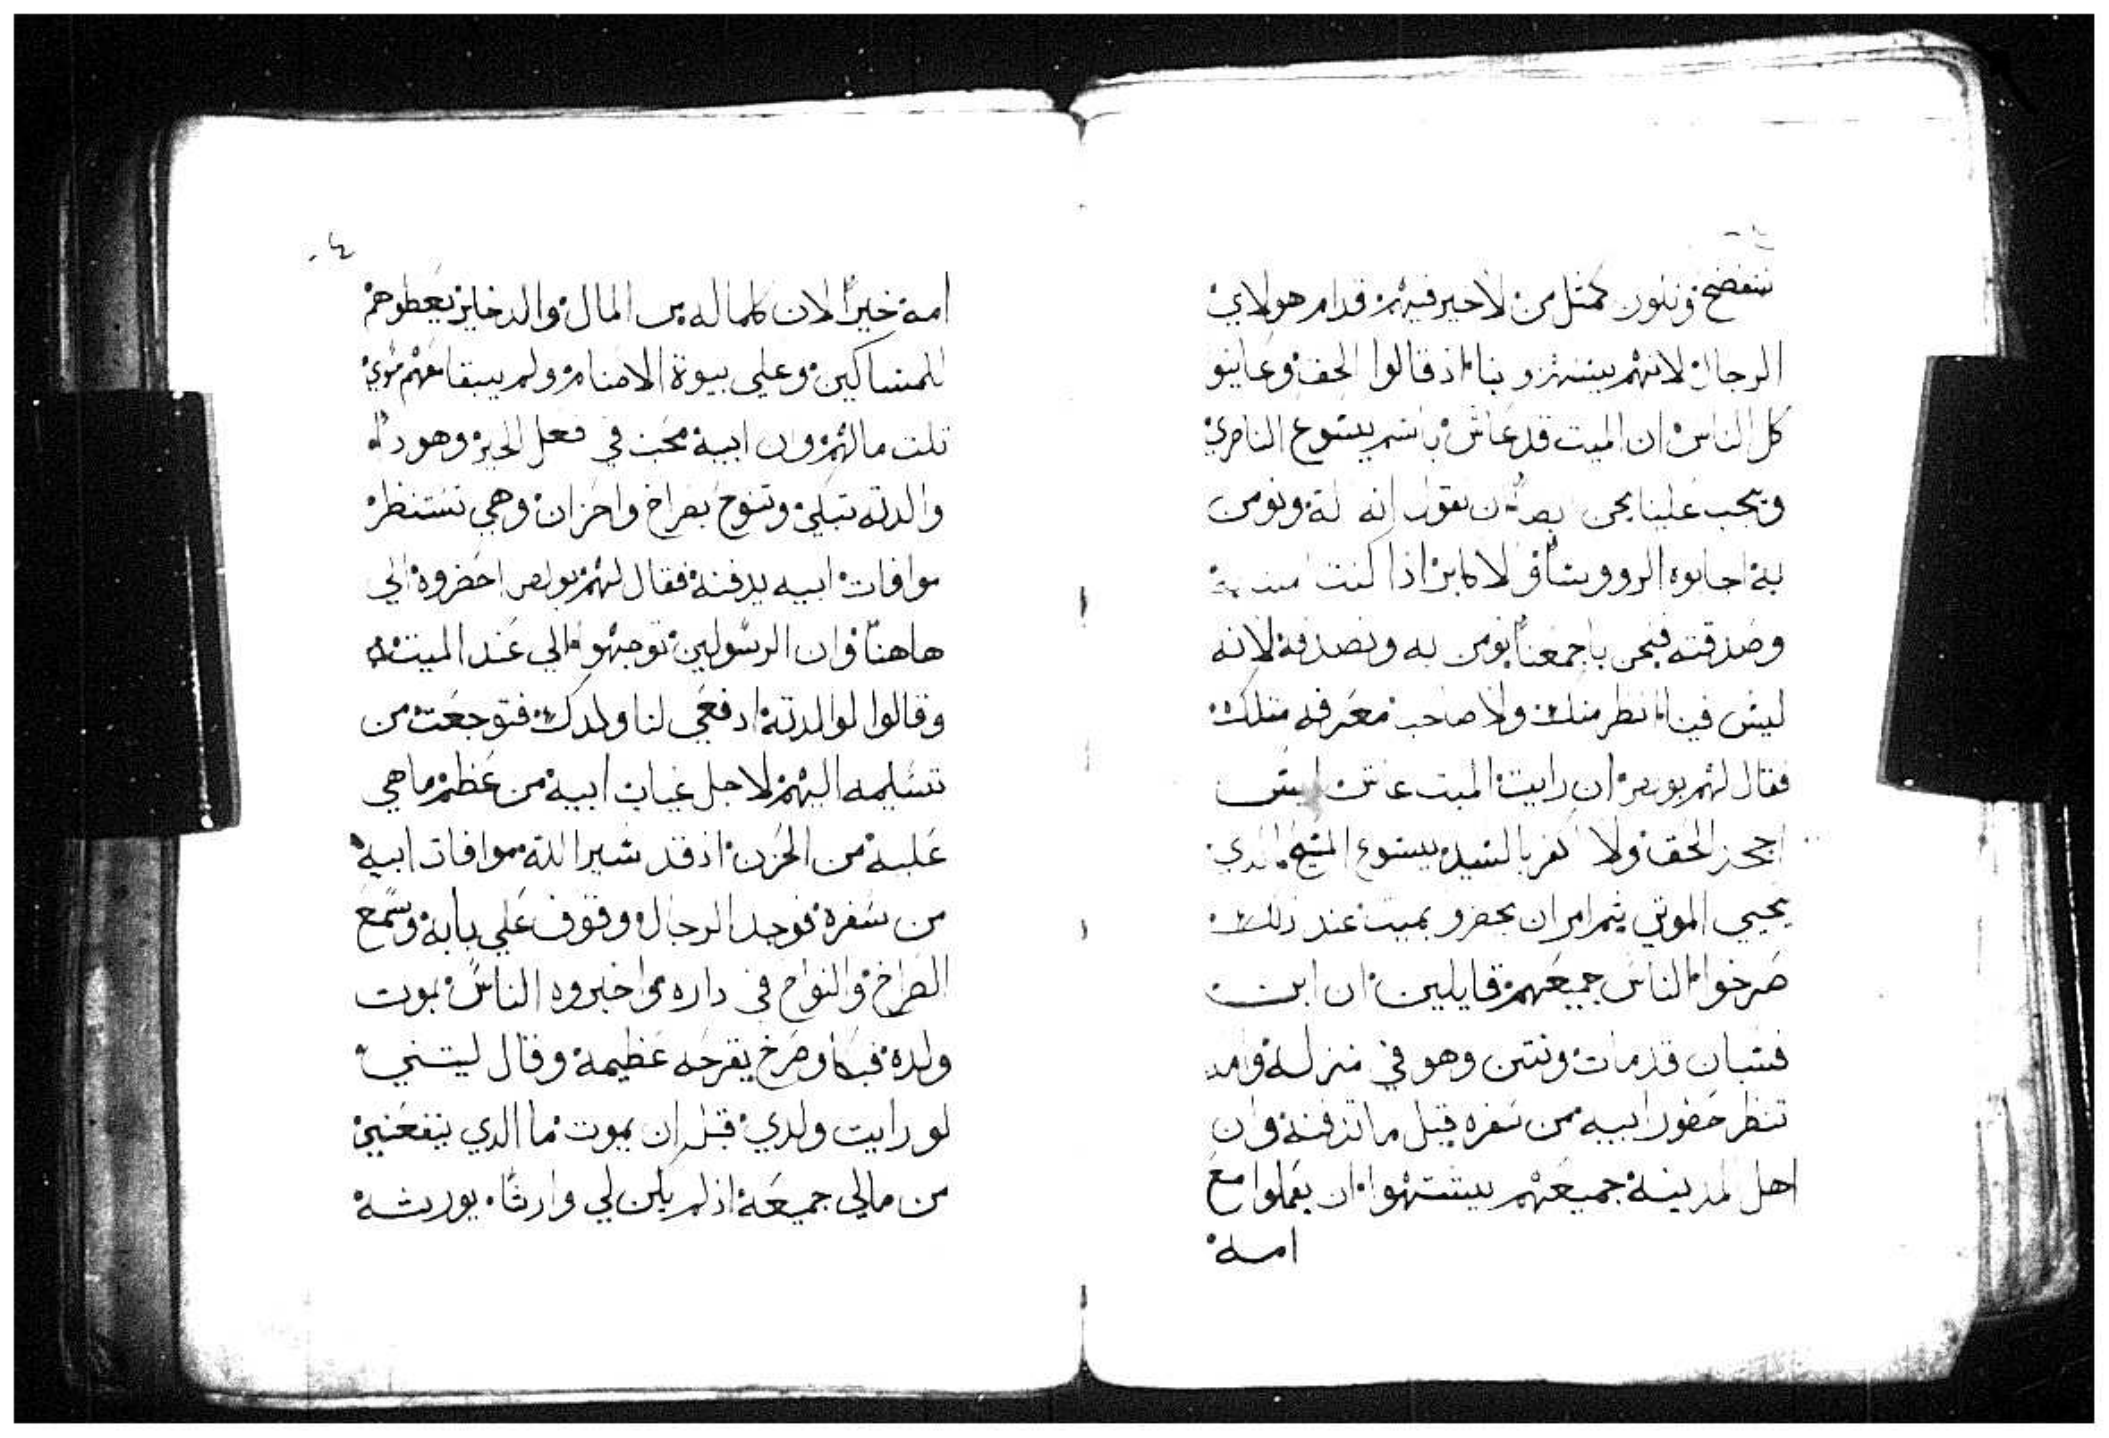 نتفضح ونكون كمثل من لا خير فيهم قدام هولاي
الرجال لانهم يستهزو بنا اذ قالوا الحق وعاينو
كل الناس ان الميت قد عاش باسم يسوع الناصري
ويجب علينا نحن ان نقول انه اله ونومن
به اجابوه الرووسا والاكابر اذا كنت امنت به
وصدقته فنحن باجمعنا نومن به ونصدقه لانه
ليس فينا انظر منك ولا صاحب معرفه مثلك
فقال لهم بولص ان رايت الميت عاش ليس
اجحد الحق ولا اكفر بالسيد يسوع المسيح الذي
يحيي الموتي ثم امر ان يحضرو بميت عند ذلك
صرخوا الناس جميعهم قايلين ان ابن
قد مات ونتن وهو في منزله وامه
تنظر حضور ابيه من سفره قبل ما تدفنه وان
اهل المدينة جميعهم يشتهوا ان يعملوا مع
امه
٤
امه خيرا لان كلما له من المال والدخاير يعطوهم
للمساكين وعلي بيوة الاصنام ولم يبقا معهم سوي
تلت مالهم وان ابيه محب في فعل الخير وهوذا
والدته تبكي وتنوح بصراخ واحزان وهي تستنظر
موافات ابيه يدفنه فقال لهم بولص احضروه الي
هاهنا وان الرسولين توجهوا الي عند الميت
وقالوا لوالدته ادفعي لنا ولدك فتوجعت من
تسليمه اليهم لاجل غياب ابيه من عظم ما هي
عليه من الحزن اذ قد سير الله موافات ابيه
من سفره فوجد الرجال وقوف علي بابه وسمع
الصراخ والنواح في داره واخبروه الناس بموت
ولده فبكا وصرخ بقرحه عظيمة وقال ليتني
لو رايت ولدي قبل ان يموت ما الذي ينفعني
من مالي جميعه اذ لم يكن لي وارثا يورثه